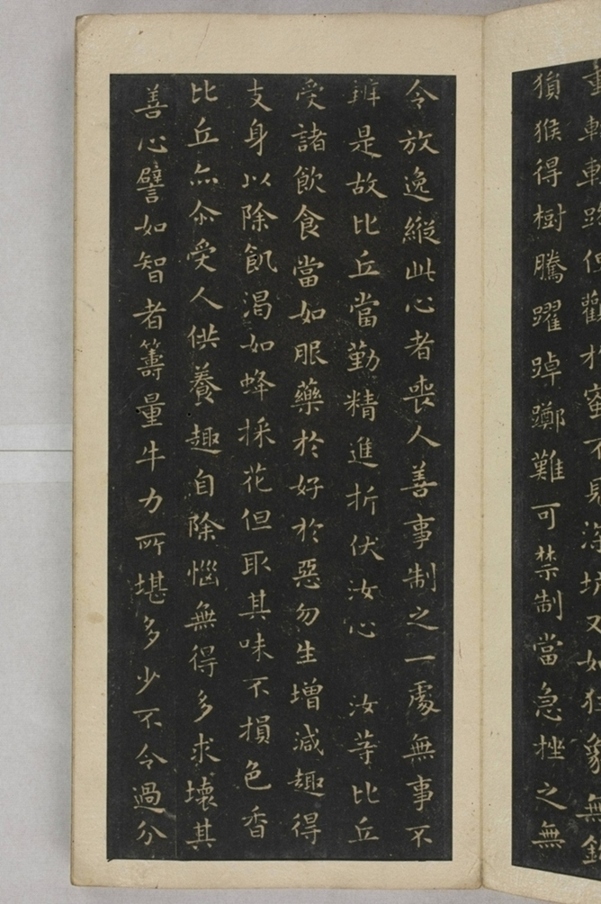 重轉輕躁但觀於蜜不見深坑又如狂象無鉤
猨猴得樹騰躍踔躑難可禁制當急挫之無
令放逸縱此心者喪人善事制之一處無事不
辦是故比丘當勤精進折伏汝心 汝等比丘
受諸飲食當如服藥於好於惡勿生增減趣得
支身以除飢渴如蜂採花但取其味不損色香
比丘亦尒受人供養趣自除惱無得多求壞其
善心譬如智者籌量牛力所堪多少不令過分